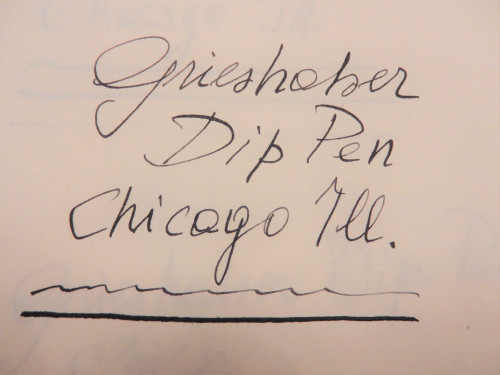 Grieshaber
Dip Pen
Chicago Ill.